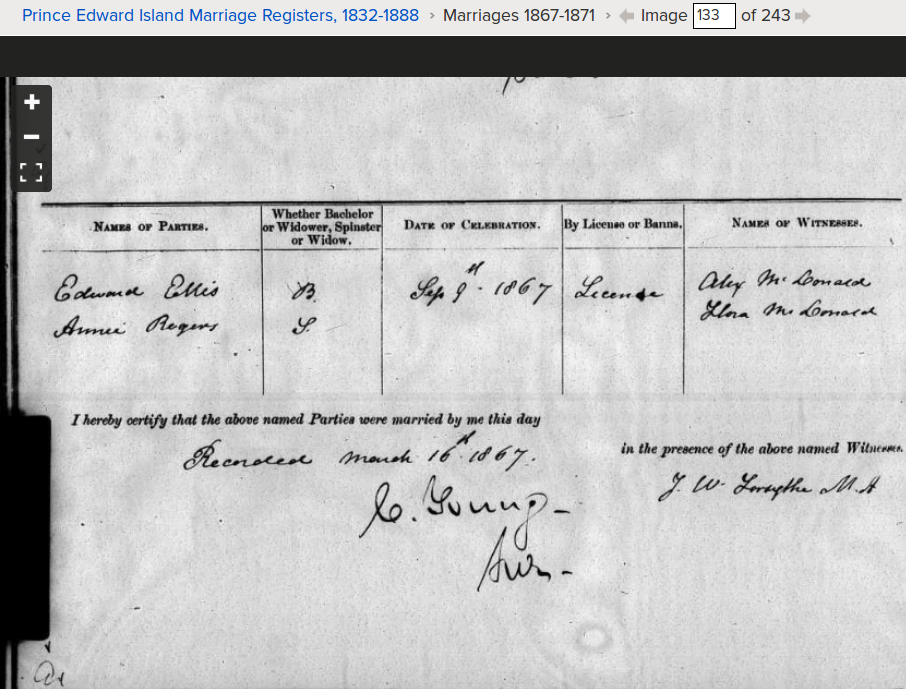 Prince Edward Island Marriage Registers, 1832-1888 › Marriages 1867-1871 › Image 133 of 243
NAMES OF PARTIES.
Whether Bachelor or Widower, Spinster or Widow.
DATE OF CELEBRATION.
By License or Banns.
NAMES OF WITNESSES.
Edward Ellis B. Sep 9th 1867 License Alex McDonald
Annie Rogers S. Flora McDonald
I hereby certify that the above named Parties were married by me this day
in the presence of the above named Witnesses.
Recorded March 16th 1867.
J. W. Forsythe M.A
C. Young